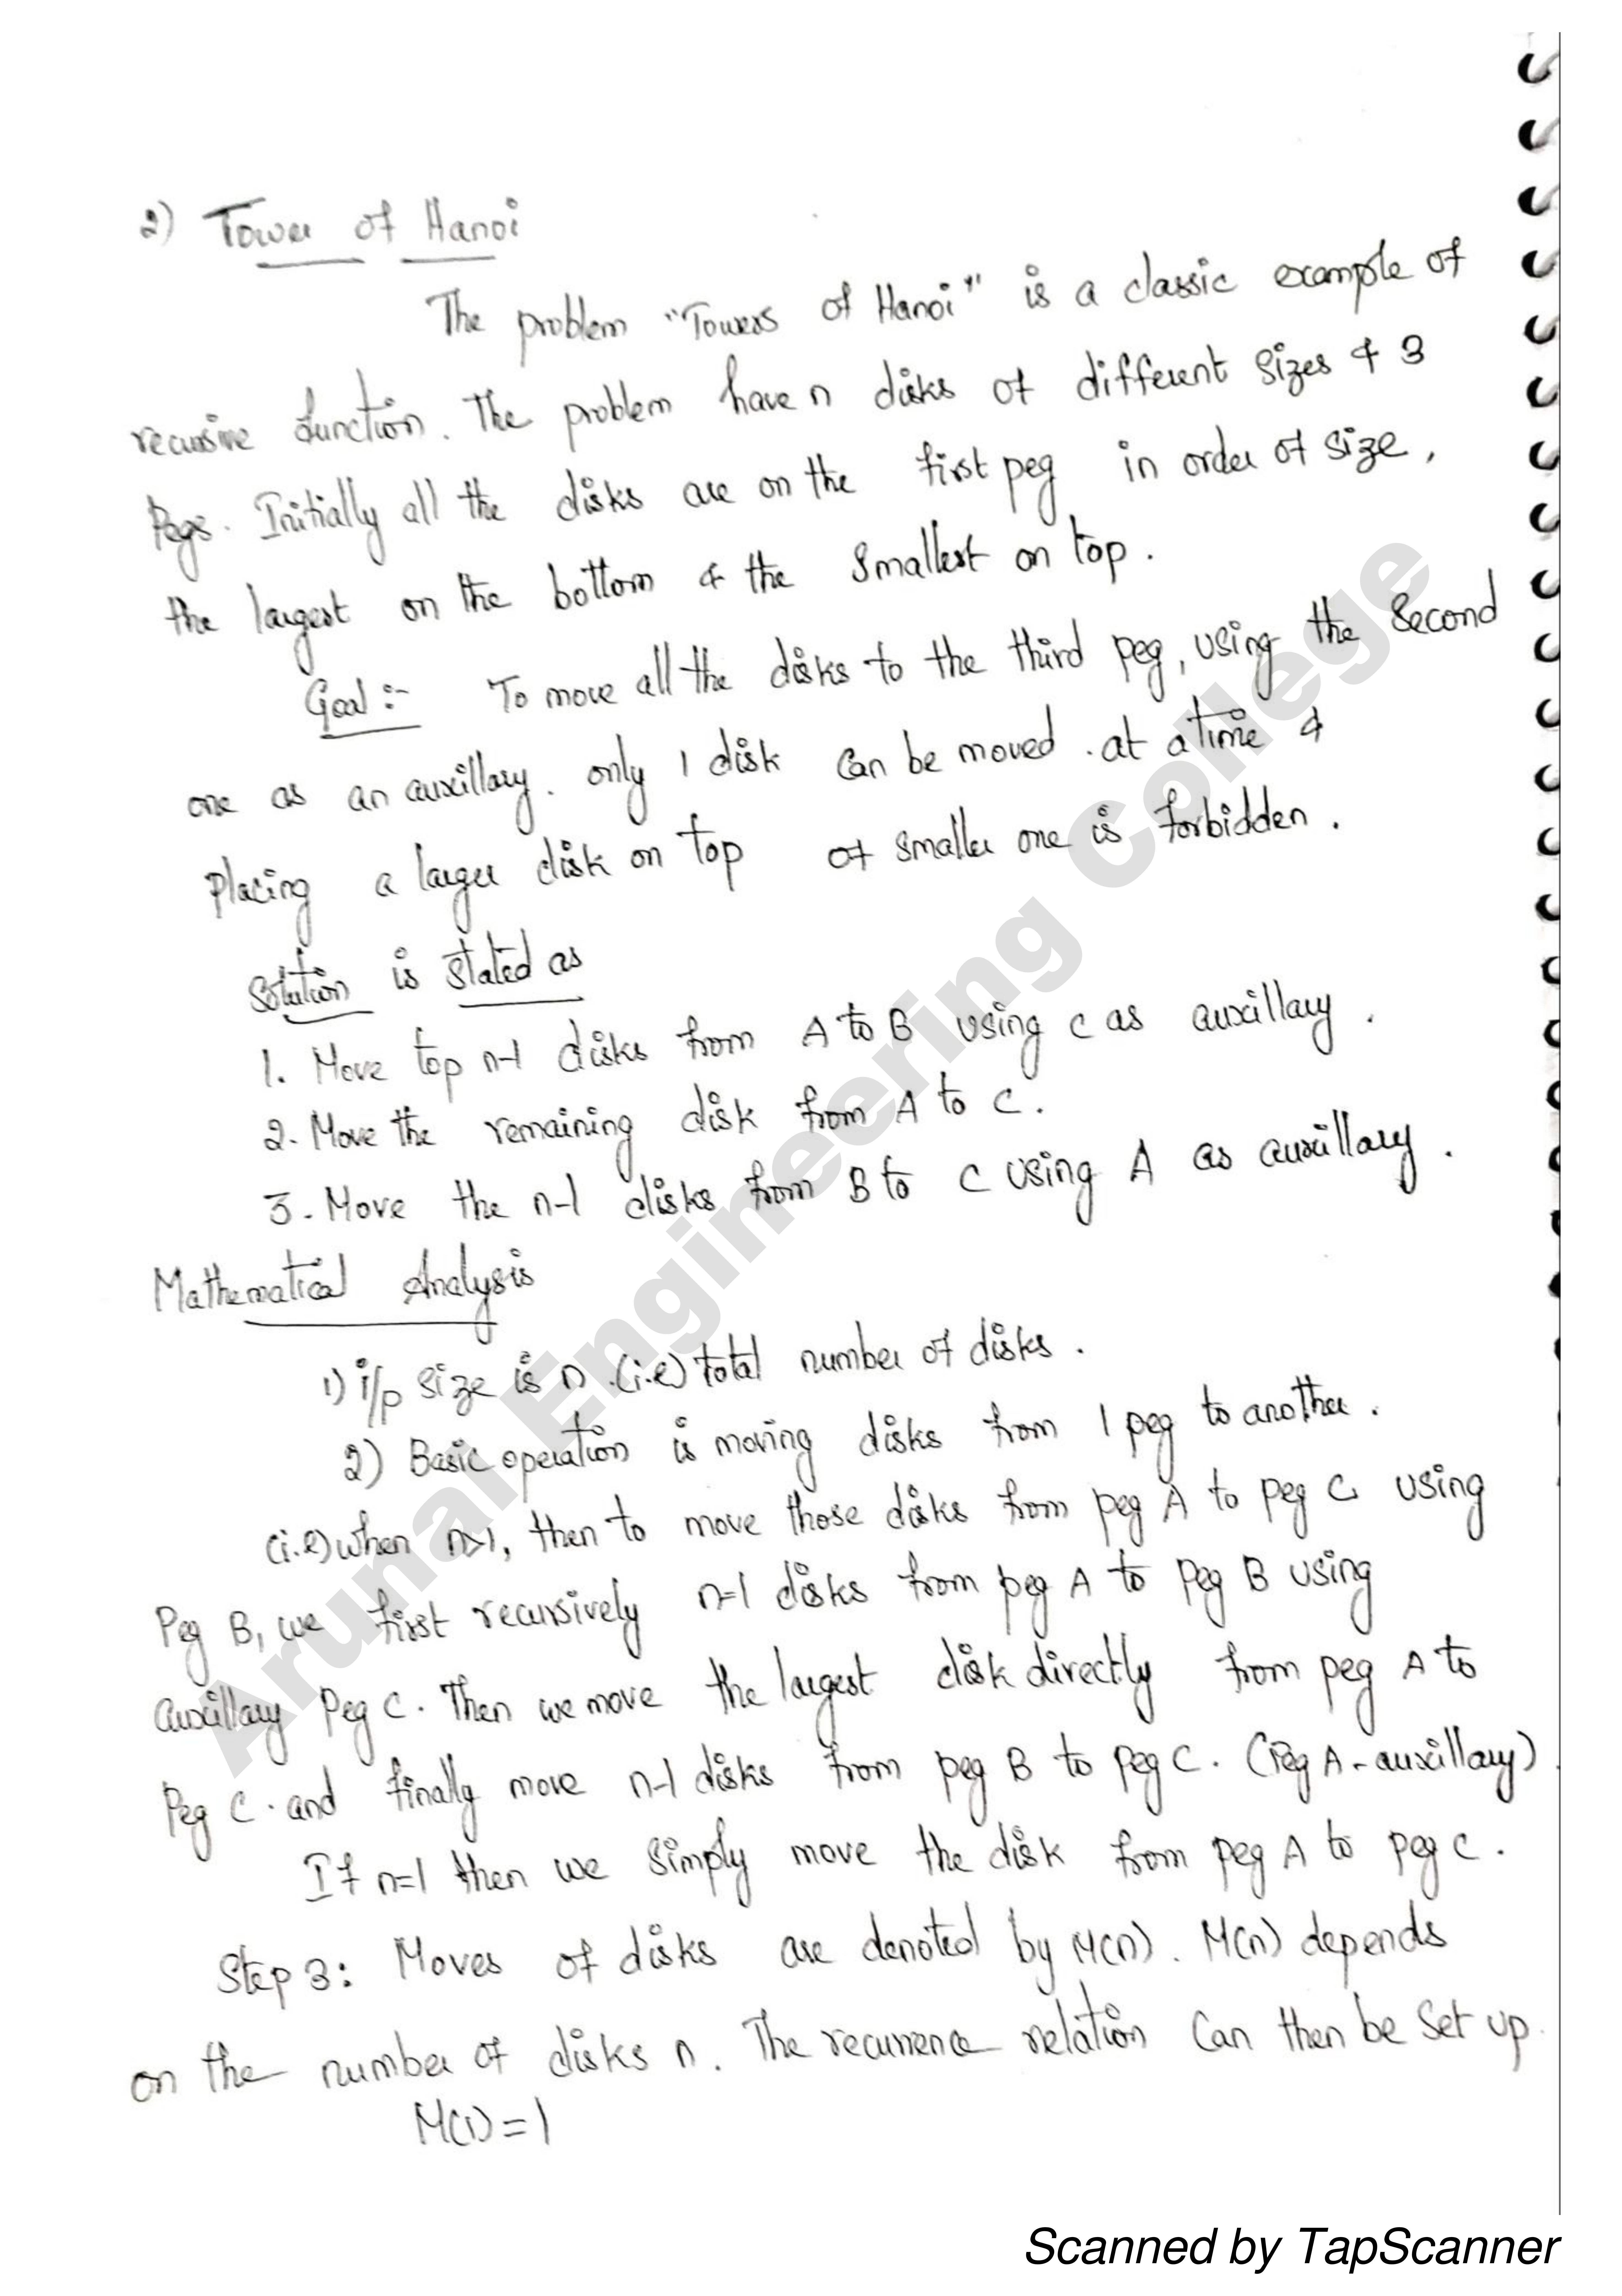 2) Tower of Hanoi
The problem "Towers of Hanoi" is a classic example of
recursive function. The problem have n disks of different sizes & 3
Pegs. Initially all the disks are on the first peg in order of size,
the largest on the bottom & the smallest on top.
Goal :- To move all the disks to the third peg, using the second
one as an auxillary. only 1 disk can be moved . at a time &
placing a larger disk on top of smaller one is forbidden.
Solution is stated as
1. Move top n-1 disks from A to B using C as auxillary.
2. Move the remaining disk from A to C.
3. Move the n-1 disks from B to C using A as auxillary.
Mathematical Analysis
1) i/p size is n .(i.e) total number of disks.
2) Basic operation is moving disks from 1 peg to another.
(i.e) when n>1, then to move those disks from peg A to peg C using
Peg B, we first recursively n-1 disks from peg A to Peg B using
auxillary Peg C. Then we move the largest disk directly from peg A to
Peg C. and finally move n-1 disks from peg B to peg C. (Peg A - auxillary)
If n=1 then we simply move the disk from peg A to peg C.
Step 3: Moves of disks are denoted by M(n). M(n) depends
on the number of disks n. The recurrence relation can then be set up.
M(1) = 1
Arunai Engineering College
Scanned by TapScanner